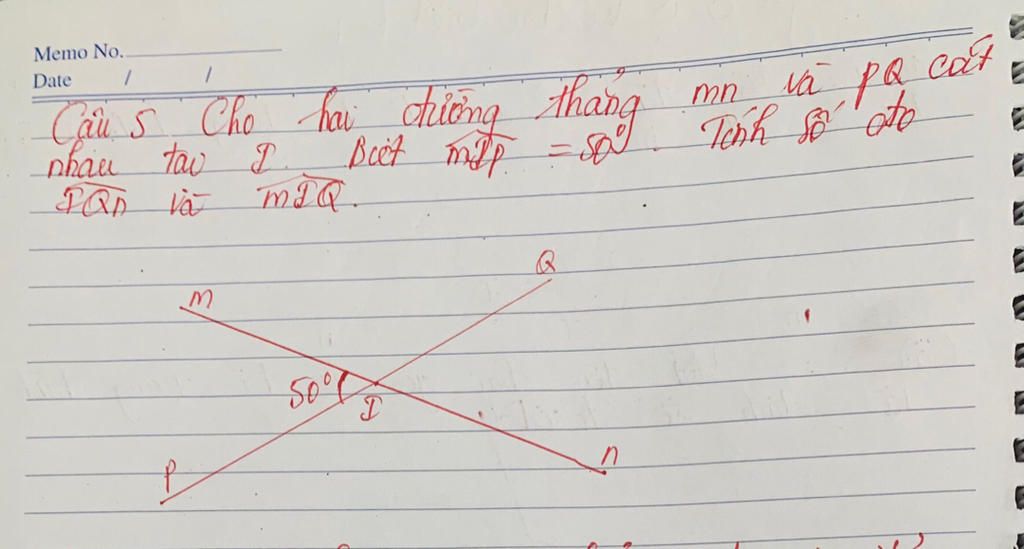 Memo No.
Date / /
Câu 5 Cho hai đường thẳng mn và PQ cắt
nhau tạo I. Biết mIP = 50°. Tính số đo
IQn và mIQ.
Q
m
50°
I
P
n